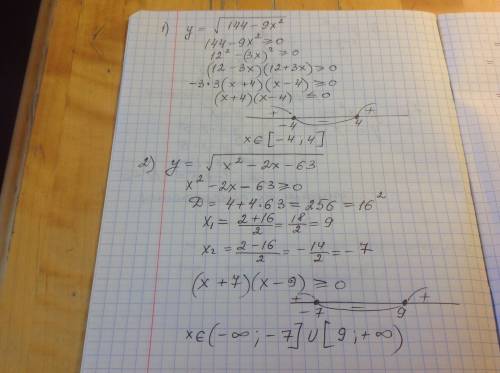 1) y = √(144 - 9x²)
144 - 9x² ≥ 0
12² - (3x)² ≥ 0
(12 - 3x)(12 + 3x) ≥ 0
-3·3(x + 4)(x - 4) ≥ 0
(x + 4)(x - 4) ≤ 0
+ - +
-4 4
x ∈ [-4; 4]
2) y = √(x² - 2x - 63)
x² - 2x - 63 ≥ 0
D = 4 + 4·63 = 256 = 16²
x₁ = (2+16)/2 = 18/2 = 9
x₂ = (2-16)/2 = -14/2 = -7
(x + 7)(x - 9) ≥ 0
+ - +
-7 9
x ∈ (-∞; -7] ∪ [9; +∞)